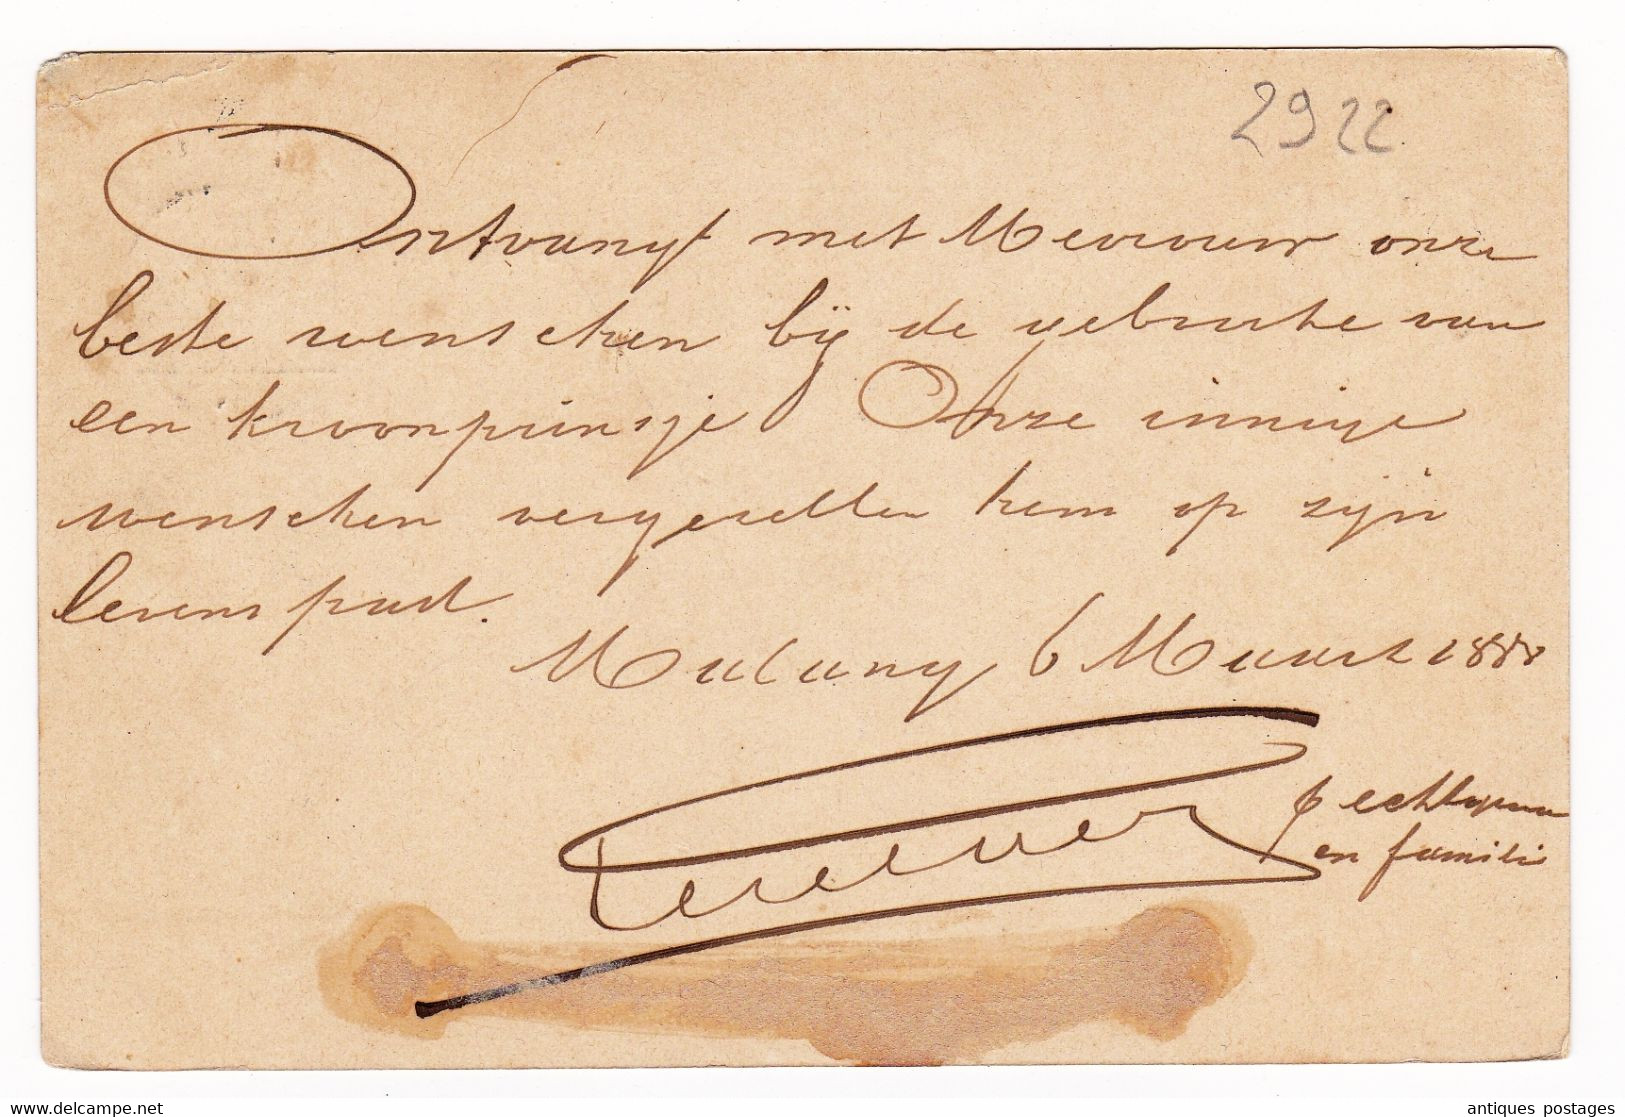 2922
Ontvangt met Mevrouw onze
beste wenschen bij de geboorte van
een kroonprinsje Onze innige
wenschen vergezellen hem op zijn
levenspad.
Malang 6 Maart 1888
en famili
www.delcampe.net
antiques postages